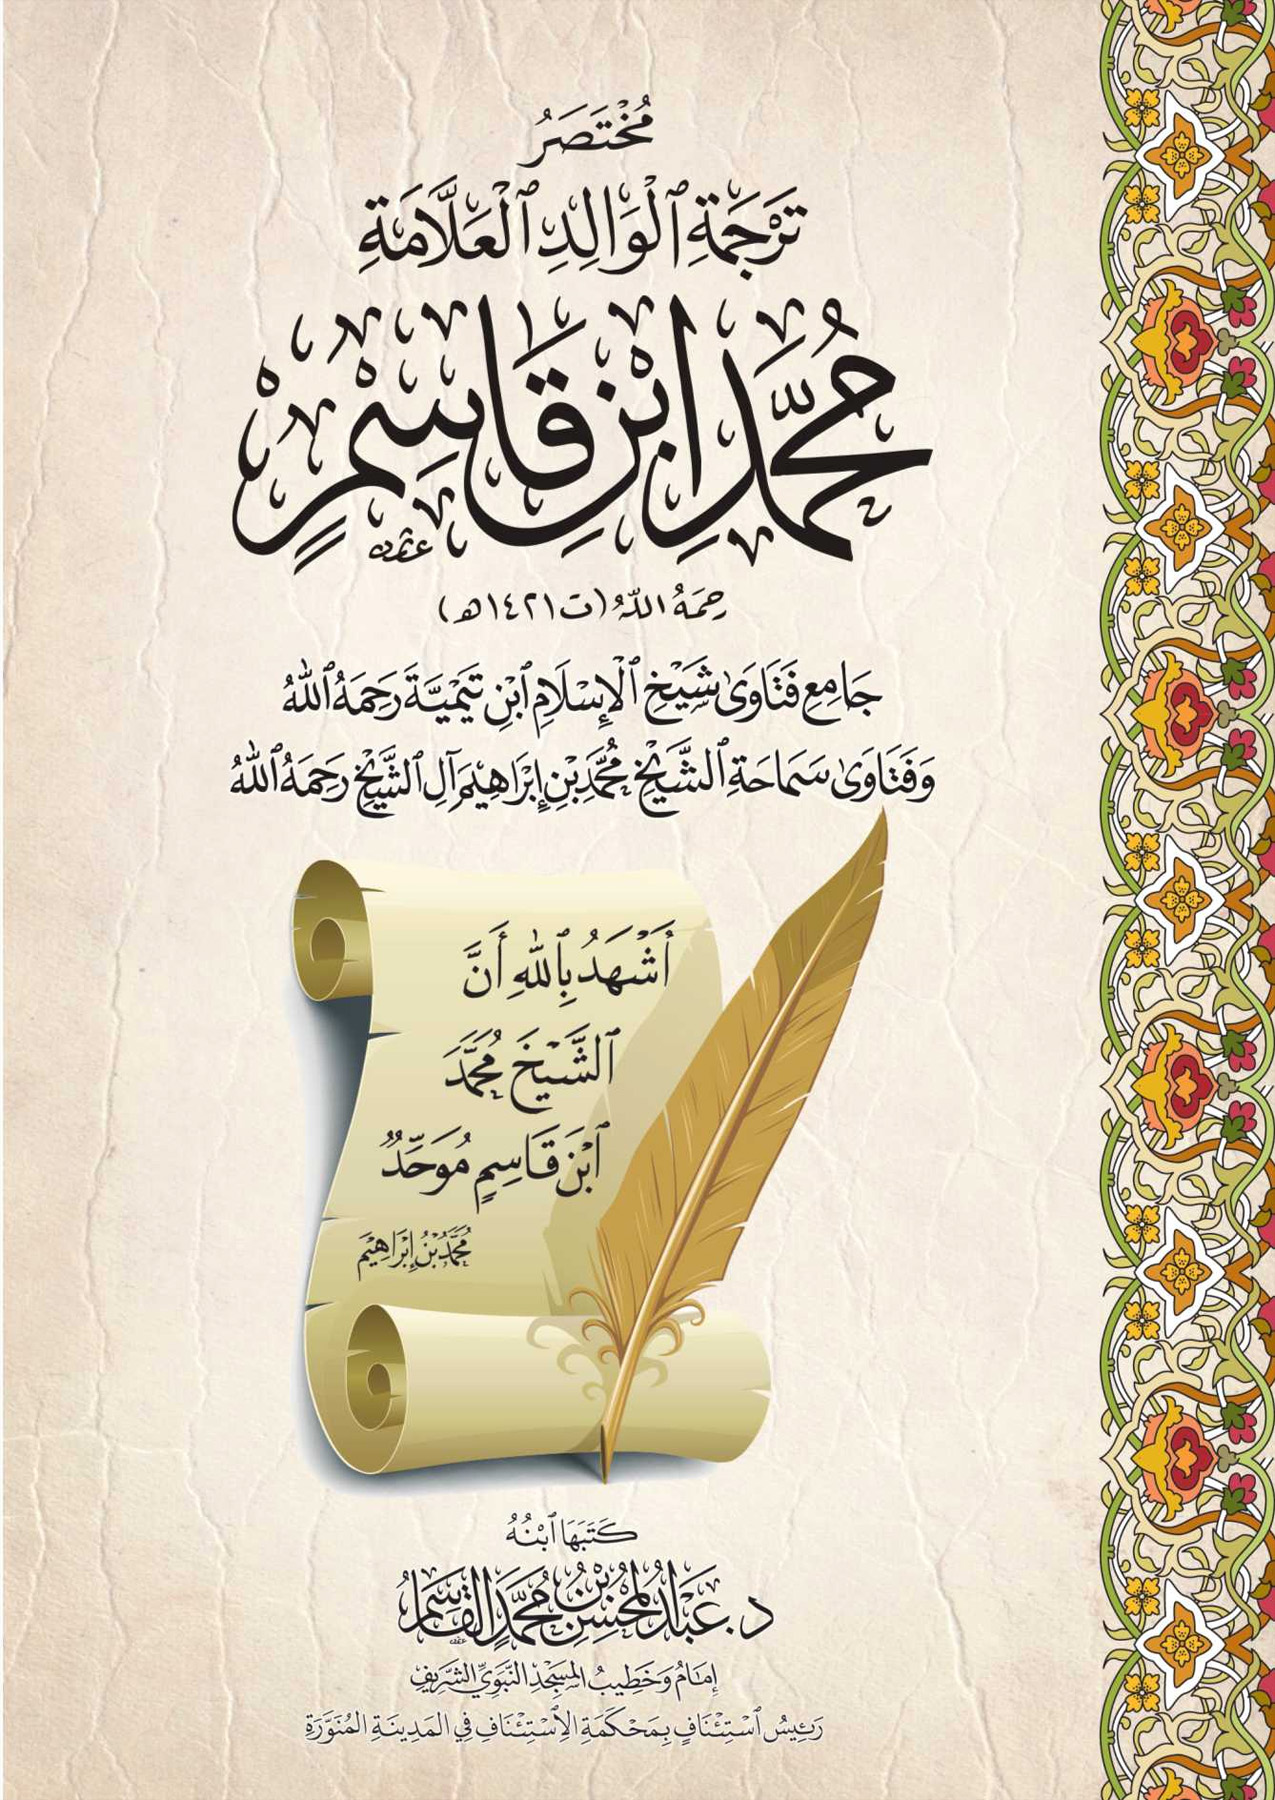 مُخْتَصَرُ
تَرْجَمَةِ ٱلْوَالِدِ ٱلْعَلَّامَةِ
مُحَمَّدِ ابْنِ قَاسِمٍ
رَحِمَهُ اللهُ (ت ١٤٢١هـ)
جَامِعِ فَتَاوَىٰ شَيْخِ ٱلْإِسْلَامِ ٱبْنِ تَيْمِيَّةَ رَحِمَهُ ٱللَّهُ
وَفَتَاوَىٰ سَمَاحَةِ ٱلشَّيْخِ مُحَمَّدِ بْنِ إِبْرَاهِيمَ آلِ ٱلشَّيْخِ رَحِمَهُ ٱللَّهُ
أَشْهَدُ بِٱللَّهِ أَنَّ
ٱلشَّيْخَ مُحَمَّدَ
ٱبْنَ قَاسِمٍ مُوَحِّدٌ
مُحَمَّدُ بْنُ إِبْرَاهِيمَ
كَتَبَهَا ٱبْنُهُ
د. عَبْدُ الْمُحْسِنِ بْنُ مُحَمَّدٍ الْقَاسِمُ
إِمَامُ وَخَطِيبُ الْمَسْجِدِ النَّبَوِيِّ الشَّرِيفِ
رَئِيسُ ٱسْتِئْنَافٍ بِمَحْكَمَةِ الِاسْتِئْنَافِ فِي الْمَدِينَةِ الْمُنَوَّرَةِ